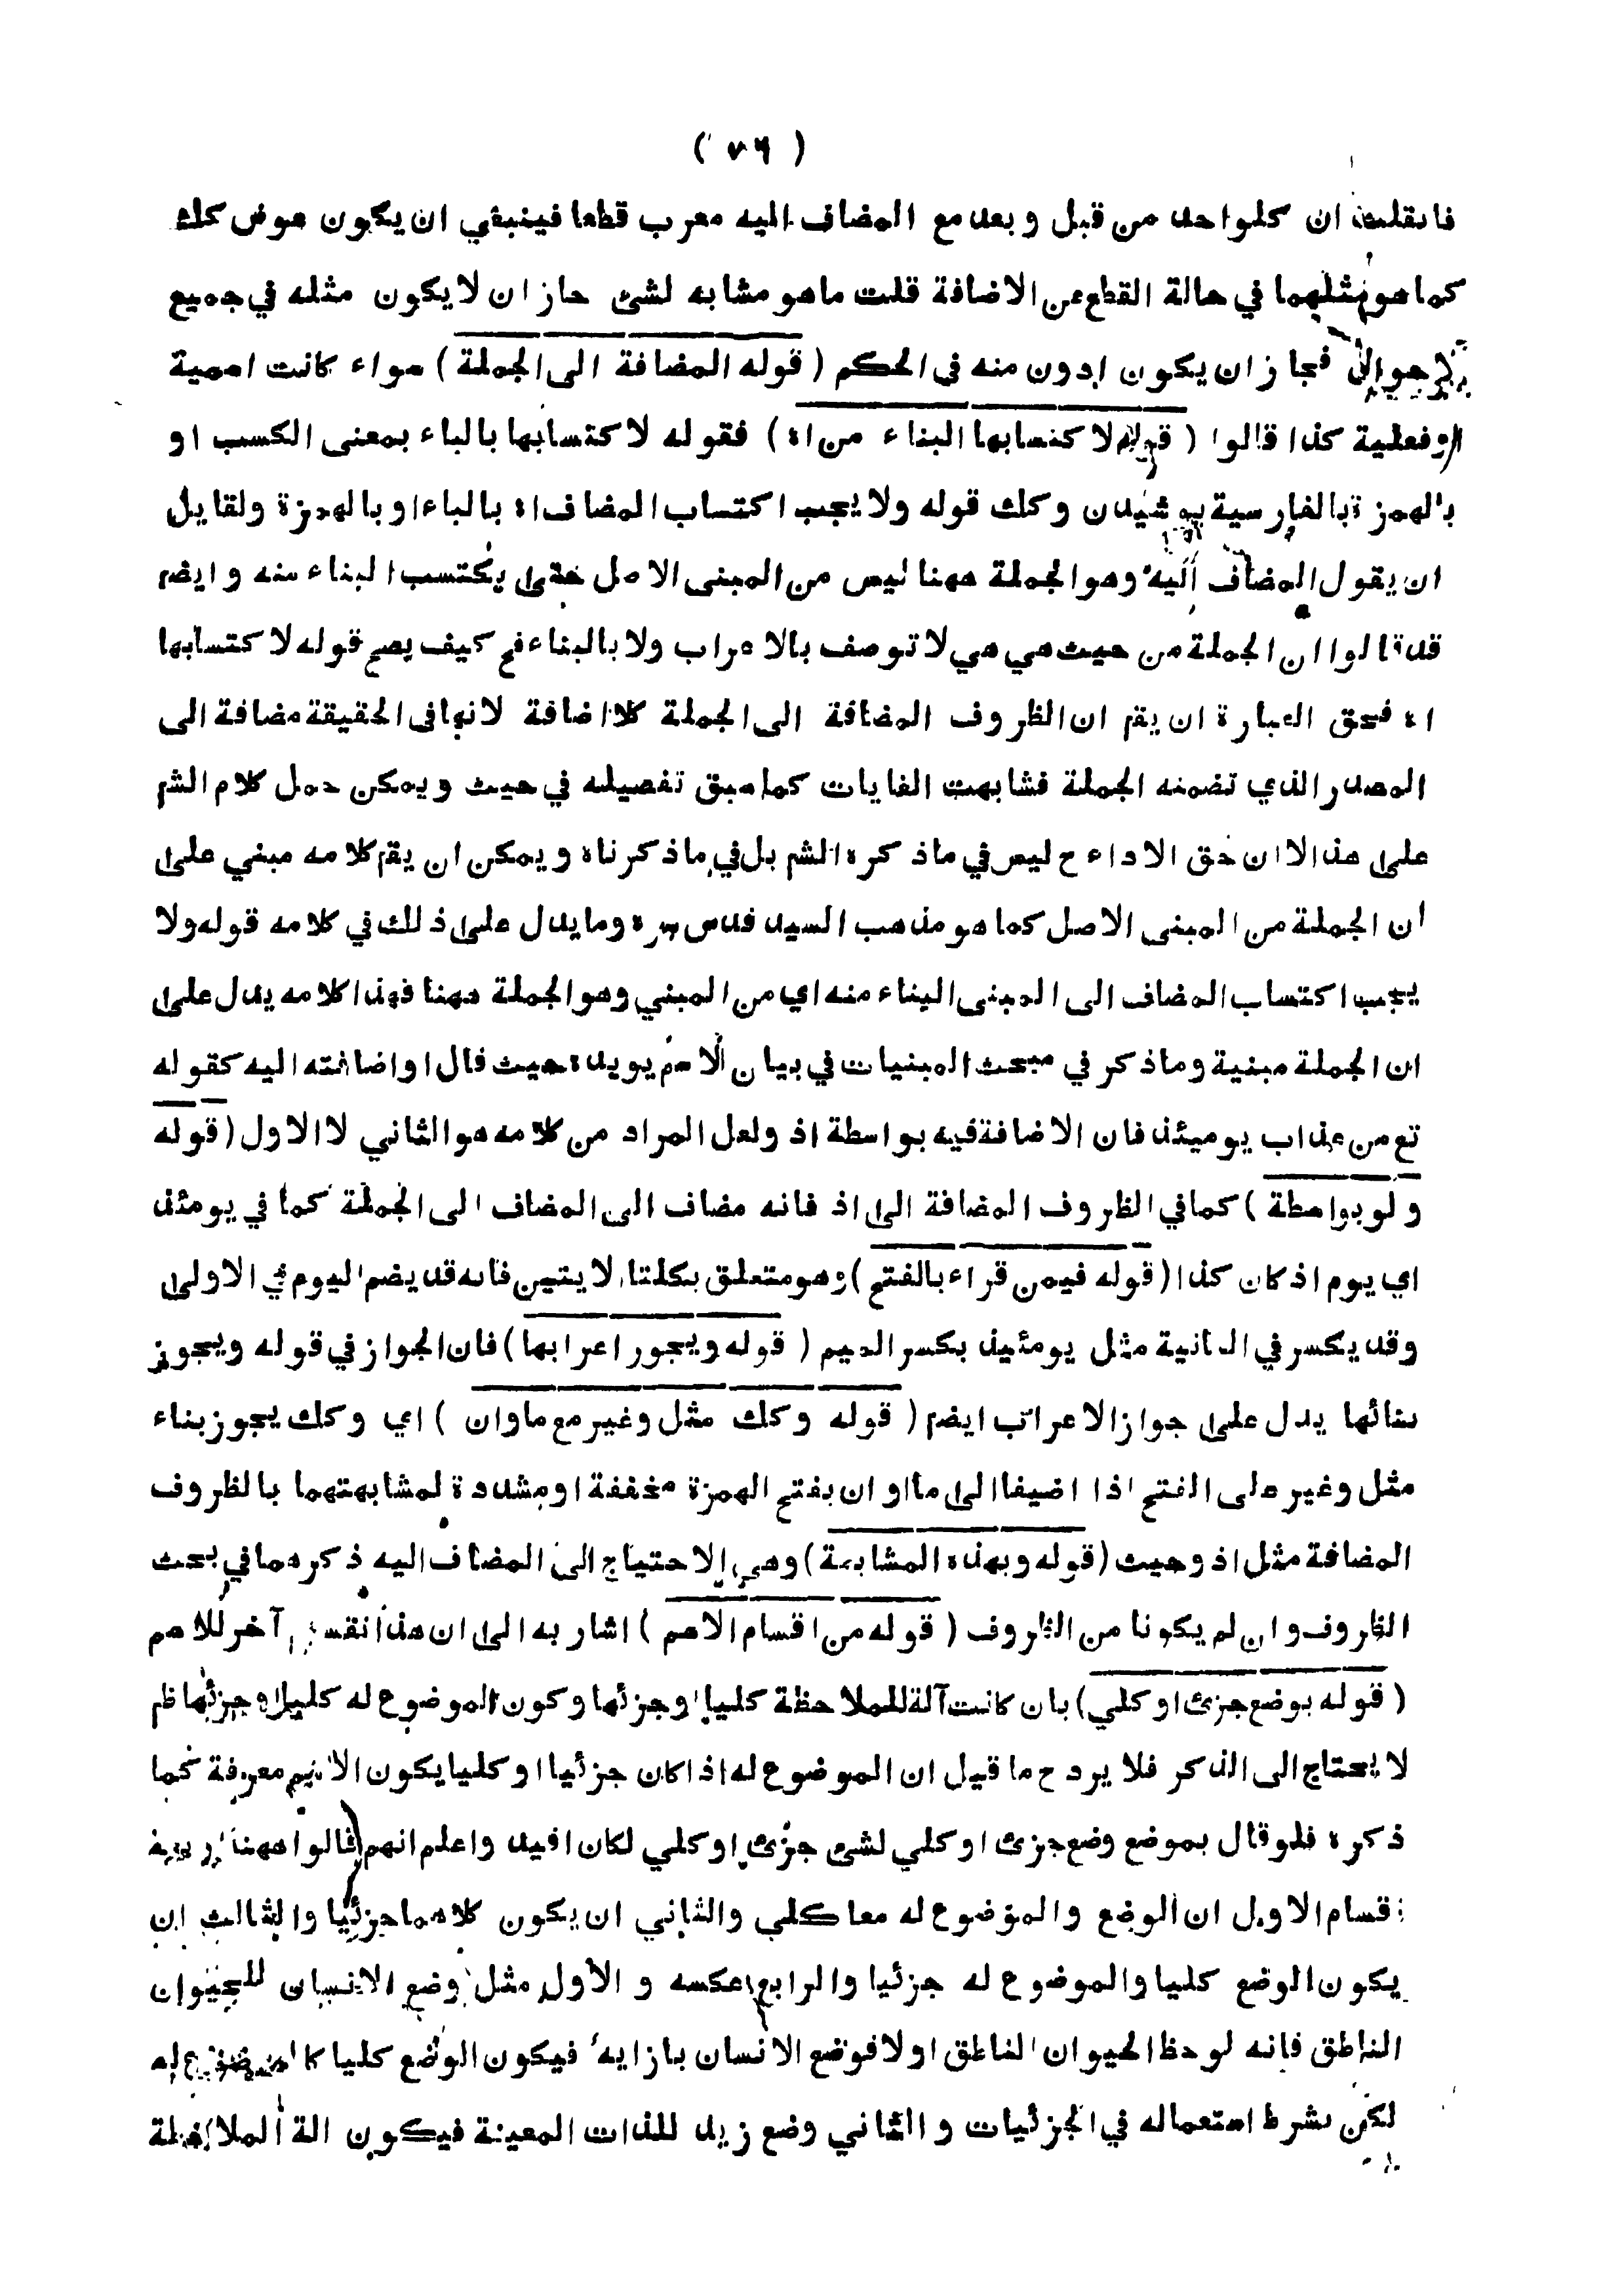 ( ٧٦ )
فانقلت ان كلواحد من قبل و بعد مع المضاف اليه معرب قطعا فينبغي ان يكون عوض كك
كما هو مثلهما في حالة القطع عن الاضافة قلت ماهو مشابه لشئ جاز ان لا يكون مثله في جميع
فجاز ان يكون ادون منه في الحكم ( قوله المضافة الى الجملة ) سواء كانت اسمية
او فعلية كذا قالوا ( قوله لاكتسابها البناء من اه ) فقوله لا كتسابها بالباء بمعنى الكسب او
بالهمزة بالفارسية پوشيدن وكك قوله ولا يجب اكتساب المضاف اه بالباء او بالهمزة ولقايل
ان يقول المضاف اليه وهو الجملة ههنا ليس من المبنى الاصل حتى يكتسب البناء منه وايضم
قد قالوا ان الجملة من حيث هي هي لا توصف بالاعراب ولا بالبناء فح كيف يصح قوله لا كتسابها
اه فحق العبارة ان يقم ان الظروف المضافة الى الجملة كلا اضافة لانها فى الحقيقة مضافة الى
المصدر الذي تضمنه الجملة فشابهت الغايات كما سبق تفصيله في حيث ويمكن حمل كلام الشم
على هذا الا ان حق الاداء ح ليس في ماذكره الشم بل في ماذكرناه ويمكن ان يقم كلامه مبني على
ان الجملة من المبنى الاصل كما هو مذهب السيد قدس سره ومايدل على ذلك في كلامه قوله ولا
يجب اكتساب المضاف الى المبنى البناء منه اي من المبني وهو الجملة ههنا فهذا كلامه يدل على
ان الجملة مبنية وماذكر في مبحث المبنيات في بيان الاسم يويده حيث قال او اضافته اليه كقوله
تع من عذاب يوميئذ فان الاضافة فيه بواسطة اذ ولعل المراد من كلامه هو الثاني لا الاول ( قوله
ولو بواسطة ) كما في الظروف المضافة الى اذ فانه مضاف الى المضاف الى الجملة كما في يومئذ
اي يوم اذ كان كذا ( قوله فيمن قراء بالفتح ) وهو متعلق بكلتا الايتين فانه قد يضم اليوم في الاولى
وقد يكسر في الثانية مثل يومئيذ بكسر الميم ( قوله ويجوز اعرابها ) فان الجواز في قوله ويجوز
بنائها يدل على جواز الاعراب ايضم ( قوله وكك مثل وغير مع ماوان ) اي وكك يجوز بناء
مثل وغير على الفتح اذا اضيفا الى ما او ان بفتح الهمزة مخففة او مشددة لمشابهتهما بالظروف
المضافة مثل اذ وحيث ( قوله وبهذه المشابهة ) وهي الاحتياج الى المضاف اليه ذكرهما في بحث
الظروف وان لم يكونا من الظروف ( قوله من اقسام الاسم ) اشار به الى ان هذا تقسيم آخر للاسم
( قوله بوضع جزئ او كلي ) بان كانت آلة للملاحظة كليا اوجزئها وكون الموضوع له كليا اوجزئيا ظم
لا يحتاج الى الذكر فلا يرد ح ما قيل ان الموضوع له اذا كان جزئيا او كليا يكون الاسم معرفة كما
ذكره فلو قال بموضع وضع جزئ او كلي لشئ جزئ او كلي لكان افيد واعلم انهم قالوا ههنا اربعة
اقسام الاول ان الوضع والموضوع له معا كلي والثاني ان يكون كلاهما جزئيا والثالث ان
يكون الوضع كليا والموضوع له جزئيا والرابع عكسه و الاول مثل وضع الانسان للحيوان
الناطق فانه لوحظ الحيوان الناطق اولا فوضع الانسان بازايه فيكون الوضع كليا كالموضوع له
لكن بشرط استعماله في الجزئيات والثاني وضع زيد للذات المعينة فيكون الة الملاحظة